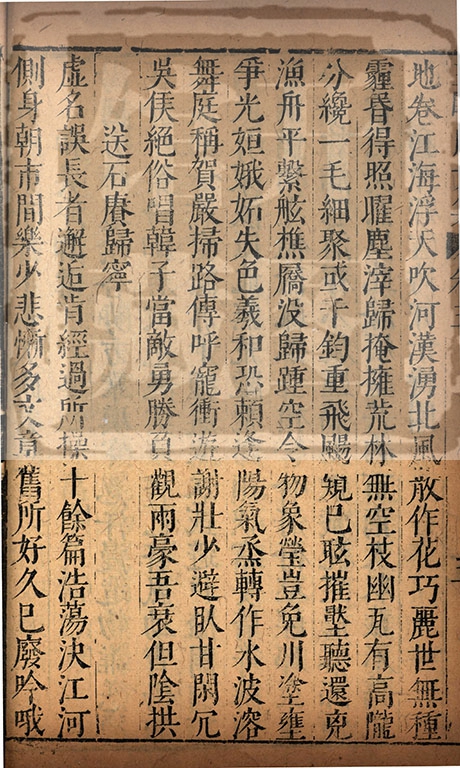 地卷江海浮天吹河漢湧北風散作花巧麗世無種
霾昏得照耀塵滓歸掩擁荒林無空枝幽瓦有高隴
分纔一毛細聚或千鈞重飛颺規已眩摧壓聽還兇
漁舟平繫舷樵屩没歸踵空令物象瑩豈免川塗壅
爭光姮娥妬失色羲和恐賴逢陽氣烝轉作水波溶
舞庭稱賀嚴掃路傳呼寵衝遊謝壯少避臥甘閑冗
吳侯絕俗唱韓子當敵勇勝負觀兩豪吾衰但陰拱
送石賡歸寧
虛名誤長者邂逅肯經過所操十餘篇浩蕩決江河
側身朝市間樂少悲慚多文章舊所好久已廢吟哦